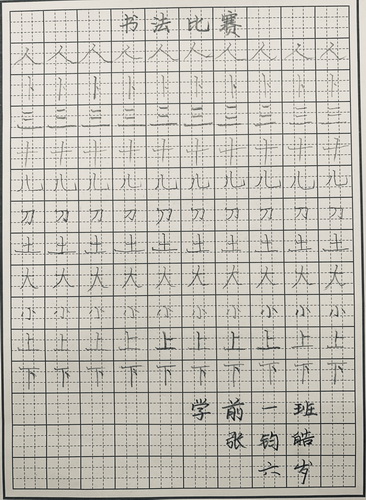 书法比赛
人人人人人人人人人人
卜卜卜卜卜卜卜卜卜卜
三三三三三三三三三三
十十十十十十十十十十
儿儿儿儿儿儿儿儿儿儿
刀刀刀刀刀刀刀刀刀刀
土土土土土土土土土土
大大大大大大大大大大
小小小小小小小小小小
上上上上上上上上上上
下下下下下下下下下下
学前一班
张钧皓
六岁